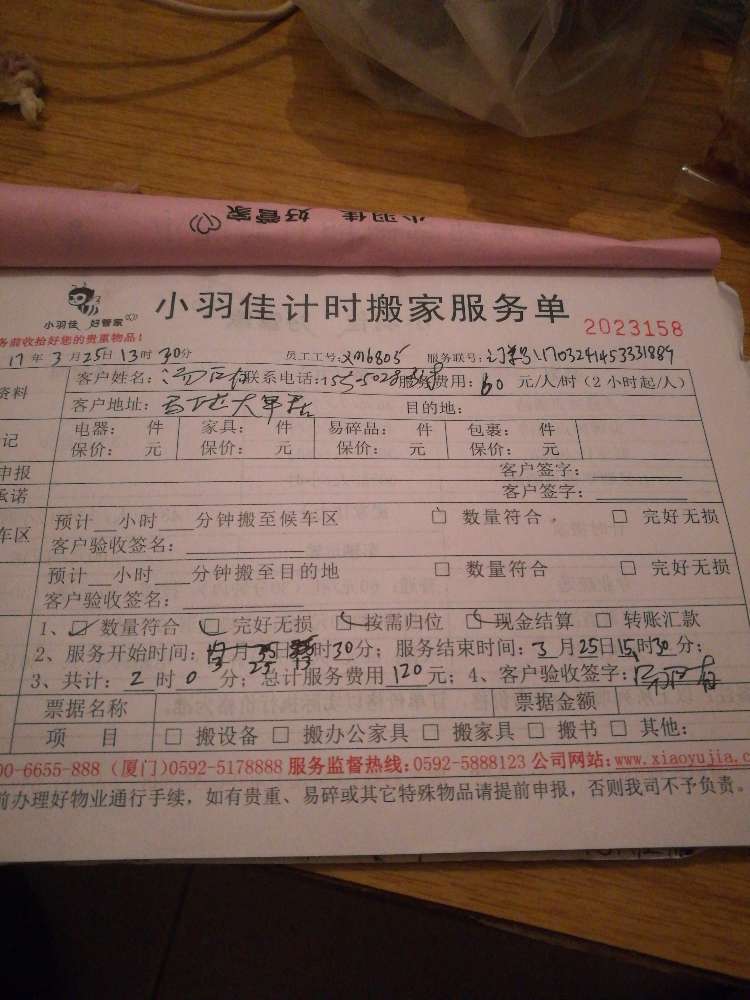 小羽佳 好管家
小羽佳 好管家 小羽佳计时搬家服务单 2023158
务前收拾好您的贵重物品!
17年3月25日13时30分 员工工号:XM6805 服务联号:订单号1703241453331889
资料 客户姓名: 联系电话: 服务费用:60元/人/时(2小时起/人)
客户地址: 目的地:
记 电器: 件 家具: 件 易碎品: 件 包裹: 件
保价: 元 保价: 元 保价: 元 保价: 元
申报 客户签字:
承诺 客户签字:
车区 预计 小时 分钟搬至候车区 □ 数量符合 □ 完好无损
客户验收签名:
预计 小时 分钟搬至目的地 □ 数量符合 □ 完好无损
客户验收签名:
1、☑ 数量符合 ☑ 完好无损 ☑ 按需归位 ☑ 现金结算 □ 转账汇款
2、服务开始时间:3月25日13时30分;服务结束时间:3月25日15时30分;
3、共计:2时0分;总计服务费用120元;4、客户验收签字:
票据名称 票据金额
项 目 □ 搬设备 □ 搬办公家具 □ 搬家具 □ 搬书 □ 其他:
00-6655-888(厦门)0592-5178888 服务监督热线:0592-5888123 公司网站:www.xiaoyujia.c
前办理好物业通行手续,如有贵重、易碎或其它特殊物品请提前申报,否则我司不予负责。